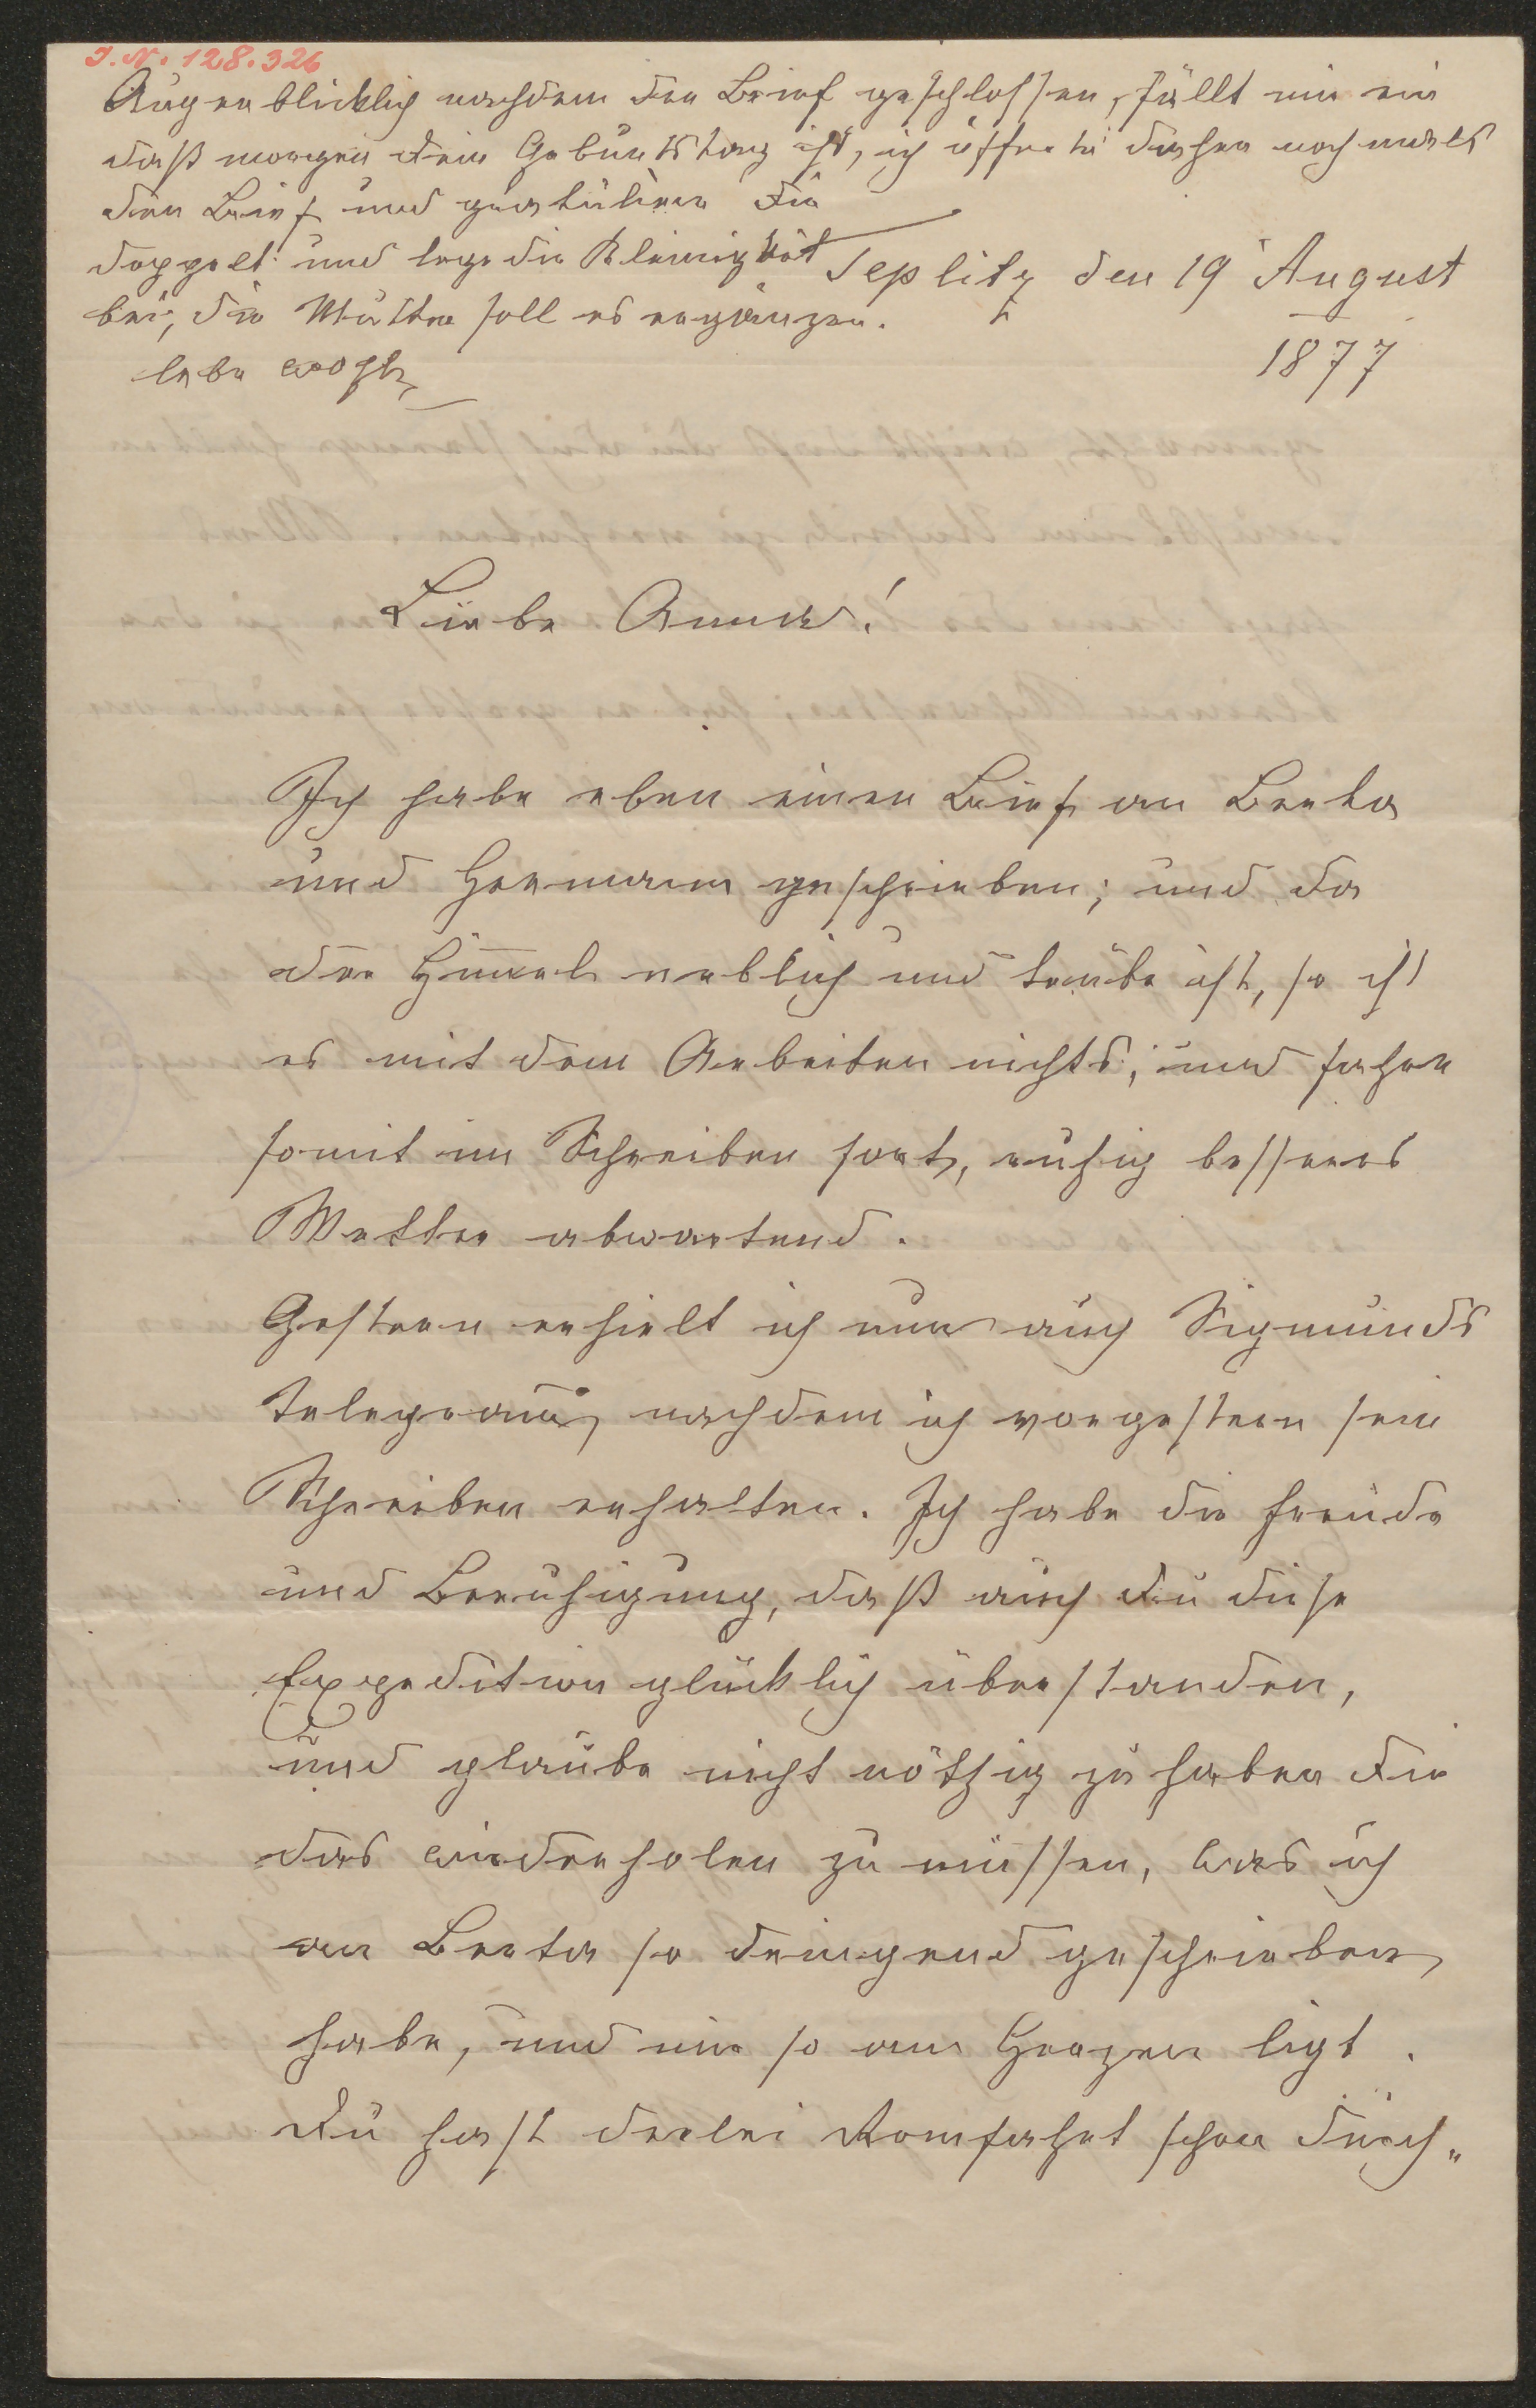 I. N. 128.326
Augenblicklich nachdem den Brief geschlossen, fällt mir ein
daß morgen Dein Geburtstag ist, ich öffnete daher nochmals
den Brief und gratulire Dir
doppelt und lege die Kleinigkeit
bei, die Mutter soll es ergänzen.
lebe wohl
Teplitz den 19 August
1877
Liebe Anna!
Ich habe eben einen Brief an Berta
und Hermann geschrieben; und da
der Him̅el neblich und trübe ist, so ist
es mit dem Arbeiten nichts; und fahre
somit im Schreiben fort, ruhig besseres
Wetter abwartend.
Gestern erhielt ich nun auch Sigmunds
Telegram̅, nachdem ich vorgestern sein
Schreiben erhalten. Ich habe die Freude
und Beruhigung, daß auch Du diese
Expedition glücklich überstanden,
und glaube nicht nöthig zu haben Dir
das wiederholen zu müssen, was ich
an Berta so dringend geschrieben
habe, und mir so am Herzen ligt.
Du hast derlei Romfahrt schon durch„